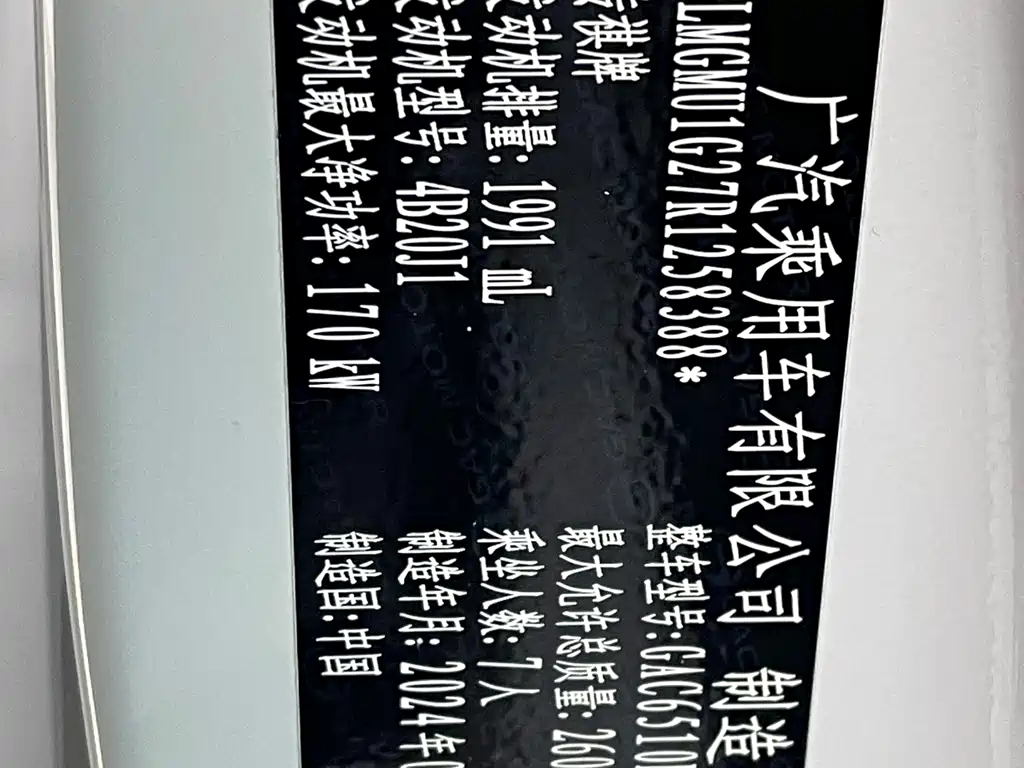 广汽乘用车有限公司 制造
LMGMU1G27R1258388*
整车型号:GAC6510
传祺牌
最大允许总质量:260
发动机排量: 1991 mL
乘坐人数: 7人
发动机型号: 4B20J1
制造年月: 2024年0
发动机最大净功率: 170 kW
制造国:中国